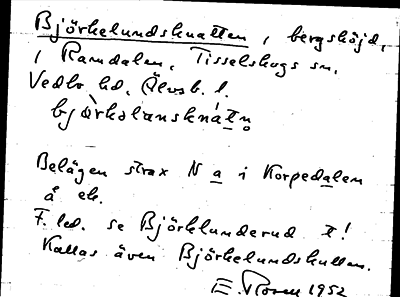 Björkelundsknatten, bergshöjd,
i Ramdalen, Tisselskogs sn,
Vedbo hd, Älvsb. l.
bjòrkǝlànsknátn̥
Belägen strax N a i Korpedalen
å ek.
F. led. se Björkelunderud t!
Kallas även Björkelundskullen.
E. Rosen 1952